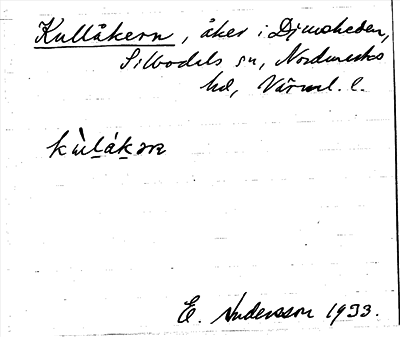 Kullåkern, åker i Djuvsheden,
Silbodals sn, Nordmarks
hd, Värml. l.
kùlákæɴ
E. Andersson 1933.